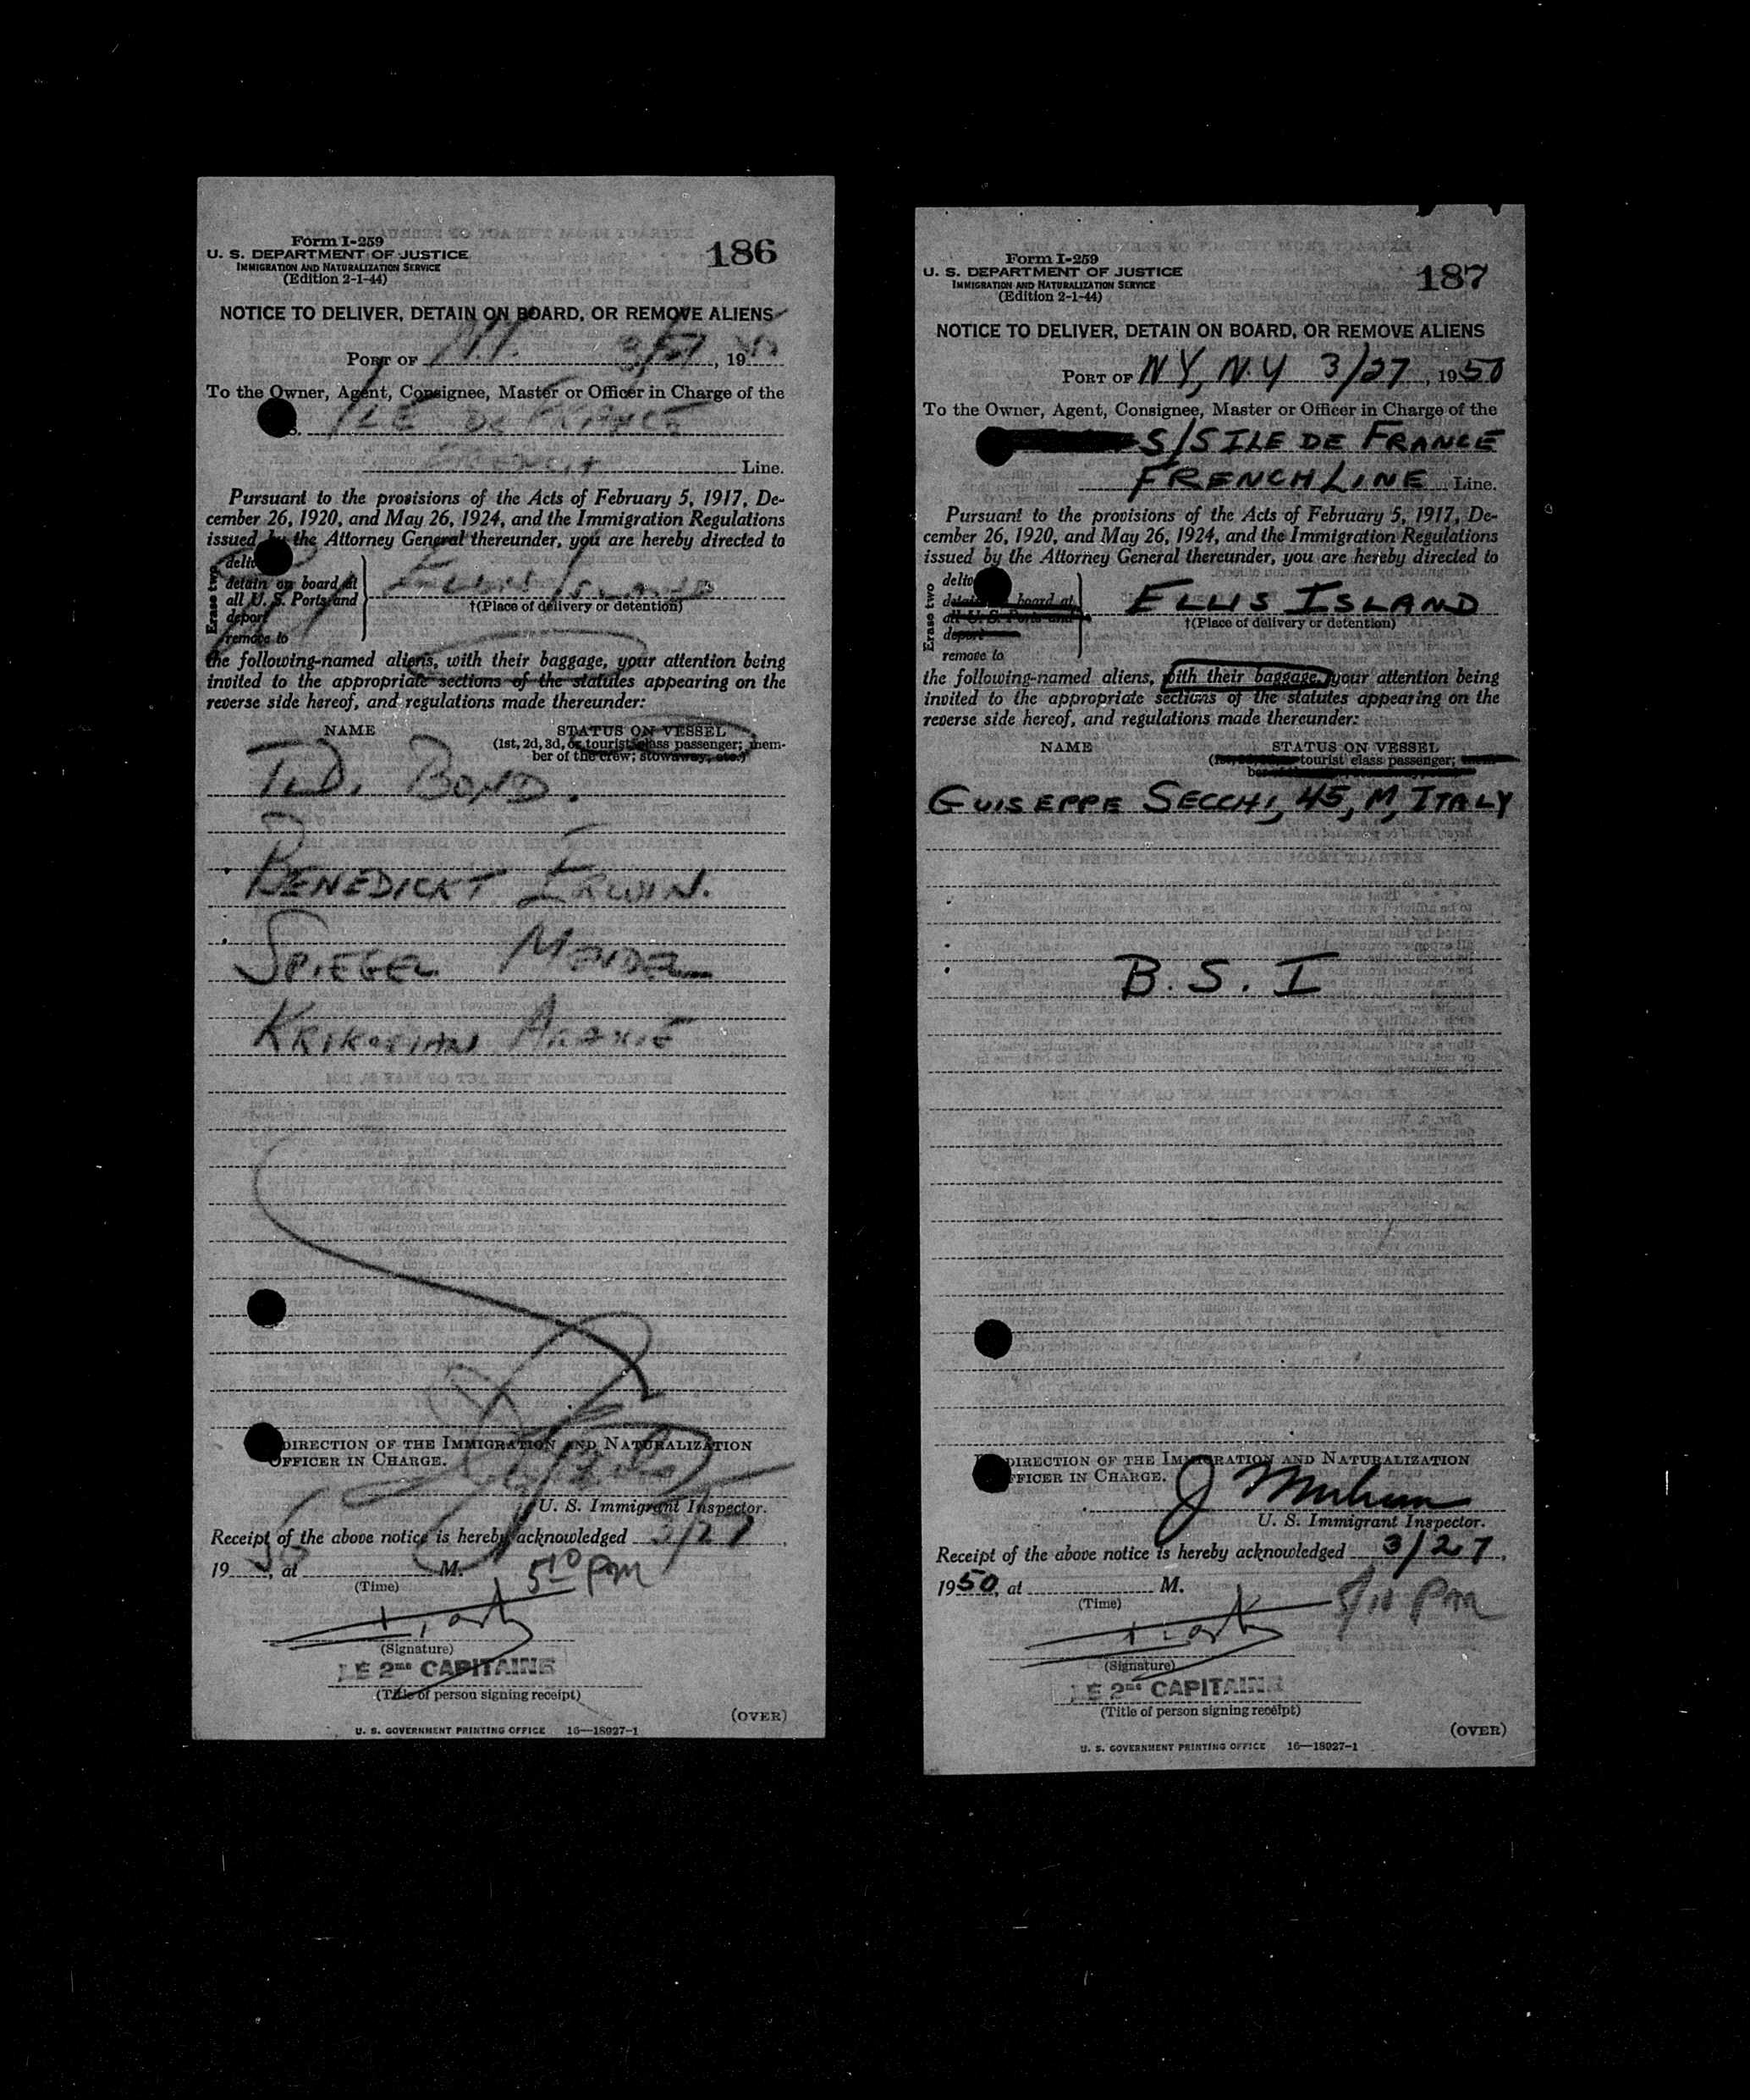 Form I-259
U. S. DEPARTMENT OF JUSTICE
IMMIGRATION AND NATURALIZATION SERVICE
(Edition 2-1-44)
186
NOTICE TO DELIVER, DETAIN ON BOARD, OR REMOVE ALIENS
PORT OF N.Y. 3/27, 19
To the Owner, Agent, Consignee, Master or Officer in Charge of the
ILE DE FRANCE
FRENCH Line.
Pursuant to the provisions of the Acts of February 5, 1917, De-
cember 26, 1920, and May 26, 1924, and the Immigration Regulations
issued by the Attorney General thereunder, you are hereby directed to
Erase two
detain on board at
all U. S. Ports and
deport
remove to
ELLIS ISLAND
†(Place of delivery or detention)
the following-named aliens, with their baggage, your attention being
invited to the appropriate sections of the statutes appearing on the
reverse side hereof, and regulations made thereunder:
NAME STATUS ON VESSEL
(1st, 2d, 3d, or tourist class passenger; mem-
ber of the crew; stowaway, etc.)
BOND.
BENEDICKT ERWIN.
SPIEGEL MENDEL
KRIKORIAN ARAXIE
DIRECTION OF THE IMMIGRATION AND NATURALIZATION
OFFICER IN CHARGE.
U. S. Immigrant Inspector.
Receipt of the above notice is hereby acknowledged 3/27,
1950, at M. 5 10 PM
(Time)
(Signature)
LE 2me CAPITAINE
(Title of person signing receipt)
(OVER)
U. S. GOVERNMENT PRINTING OFFICE 16—18927-1
Form I-259
U. S. DEPARTMENT OF JUSTICE
IMMIGRATION AND NATURALIZATION SERVICE
(Edition 2-1-44)
187
NOTICE TO DELIVER, DETAIN ON BOARD, OR REMOVE ALIENS
PORT OF NY, N.Y 3/27, 1950
To the Owner, Agent, Consignee, Master or Officer in Charge of the
S/S ILE DE FRANCE
FRENCH LINE Line.
Pursuant to the provisions of the Acts of February 5, 1917, De-
cember 26, 1920, and May 26, 1924, and the Immigration Regulations
issued by the Attorney General thereunder, you are hereby directed to
Erase two
board at
all U. S. Ports and
deport
remove to
ELLIS ISLAND
†(Place of delivery or detention)
the following-named aliens, with their baggage, your attention being
invited to the appropriate sections of the statutes appearing on the
reverse side hereof, and regulations made thereunder:
NAME STATUS ON VESSEL
tourist class passenger;
GUISEPPE SECCHI, 45, M, ITALY
B. S. I
DIRECTION OF THE IMMIGRATION AND NATURALIZATION
OFFICER IN CHARGE.
U. S. Immigrant Inspector.
Receipt of the above notice is hereby acknowledged 3/27,
1950, at M. 5/10 PM
(Time)
(Signature)
LE 2me CAPITAINE
(Title of person signing receipt)
(OVER)
U. S. GOVERNMENT PRINTING OFFICE 16—18927-1